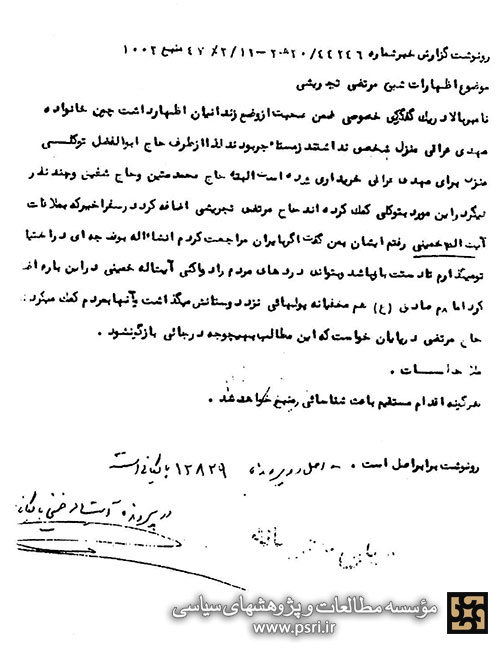 رونوشت گزارش خبر شماره ۲۰ه۲۰/۴۴۲۴۶ - ۴۷/۲/۱۱ منبع ۱۰۰۲
موضوع اظهارات شیخ مرتضی تجریشی
نامبرده بالا در یک گفتگوی خصوصی ضمن صحبت از وضع زندانیان اظهار داشت چون خانواده
مهدی عراقی منزل شخصی نداشتند و مستاجر بودند لذا از طرف حاج ابوالفضل توکلی
منزلی برای مهدی عراقی خریداری شده است البته حاج محمد متین و حاج شفیق و چند نفر
دیگر در این مورد بتوکلی کمک کرده اند حاج مرتضی تجریشی اضافه کرد در سفر اخیر که بملاقات
آیت اله خمینی رفتم ایشان بمن گفت اگر بایران مراجعت کردم انشاءاله بودجه ای در اختیار
تو میگذارم تا دستت باز باشد و بتوانی دردهای مردم را دوا کنی آیت اله خمینی در این باره اضافه
کرد امام صادق (ع) هم مخفیانه پولهائی نزد دوستانش میگذاشت و آنها بمردم کمک میکردند
حاج مرتضی در پایان خواست که این مطالب بهیچوجه در جائی بازگو نشود .
ملاحظات .
هرگونه اقدام مستقیم باعث شناسائی منبع خواهد شد .
رونوشت برابر اصل است . اصل در پرونده ۱۲۸۲۹ بایگانی است
در پرونده بایگانی
مؤسسه مطالعات و پژوهشهای سیاسی
www.psri.ir